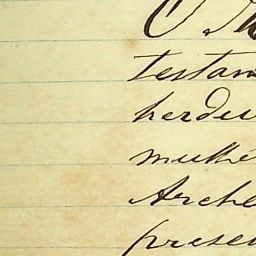 O M
testam
herdei
mulhe
Arche
presen